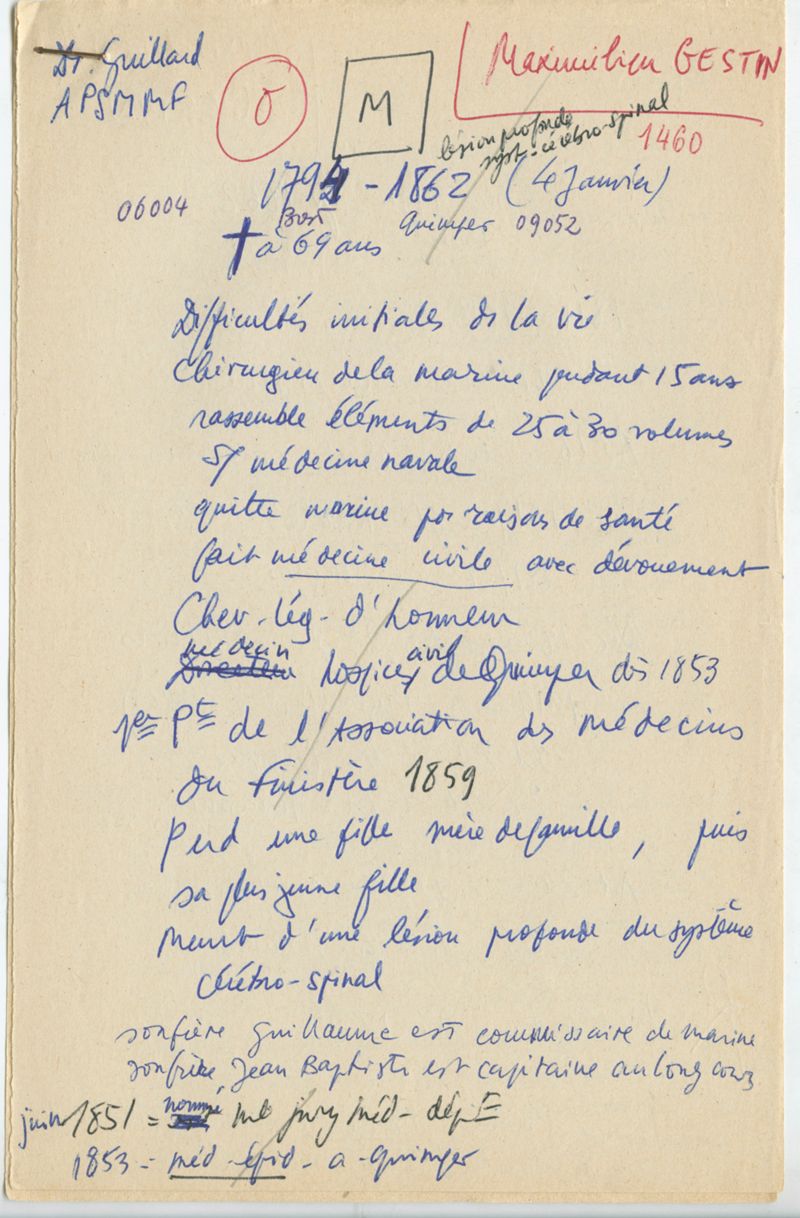 Dr. Guillard
APSMMF
O
M
Maximilien GESTIN
1460
lésion profonde
syst-cérébro-spinal
1794 - 1862 (4 Janvier)
06004
Brest
Quimper 09052
† à 69 ans
Difficultés initiales de la vie
Chirurgien de la marine pendant 15 ans
rassemble éléments de 25 à 30 volumes
S/ médecine navale
quitte marine pr raisons de santé
fait médecine civile avec dévouement
Chev. lég. d'honneur
médecin
hospices civils de Quimper dès 1853
1er Pt de l'Association des médecins
du Finistère 1859
Perd une fille mère de famille, puis
sa plus jeune fille
Meurt d'une lésion profonde du système
cérébro-spinal
son frère Guillaume est commissaire de marine
son frère Jean Baptiste est capitaine au long cours
juin 1851 = nommé mb jury méd- dépt
1853 - méd-épid- a -Quimper